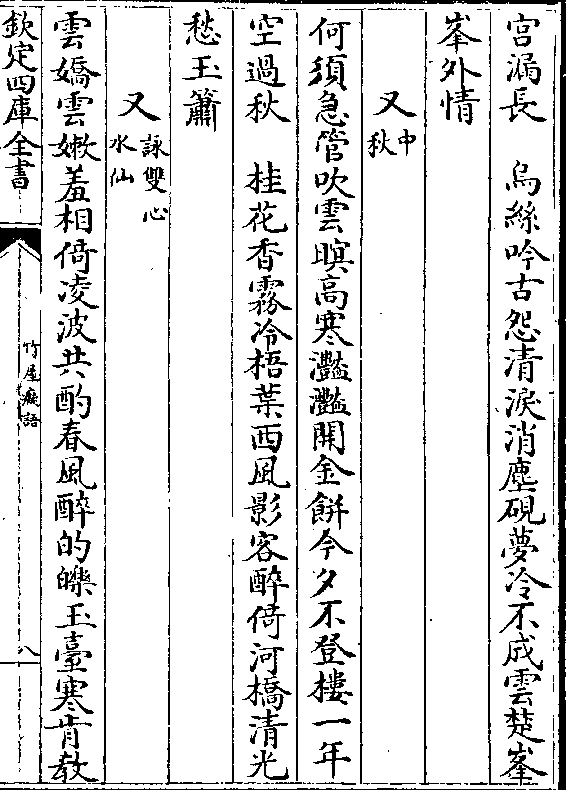 宫漏長　烏絲吟古怨清淚消塵硯夢冷不成雲楚峯
峯外情
又中秋
何須急管吹雲暝高寒灩灩開金餅今夕不登樓一年
空過秋　桂花香霧冷梧葉西風影客醉倚河橋清光
愁玉簫
又詠雙心水仙
雲嬌雲嫰羞相倚凌波共酌春風醉的皪玉臺寒肯教
欽定四庫全書
竹屋癡語
八